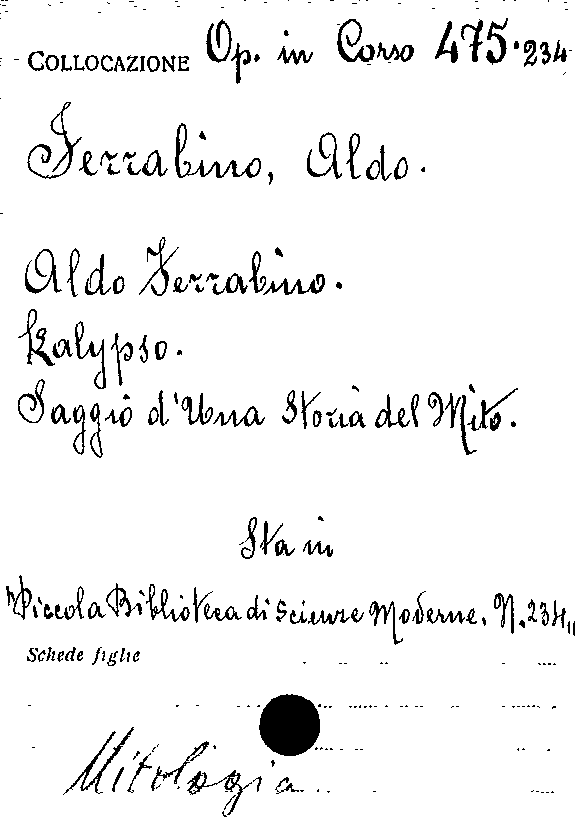 COLLOCAZIONE Op. in Corso 475.234
Ferrabino, Aldo.
Aldo Ferrabino.
Kalypso.
Saggio d'Una Storia del Mito.
Sta in
"Piccola Biblioteca di Scienze Moderne. N. 234"
Schede figlie
Mitologia